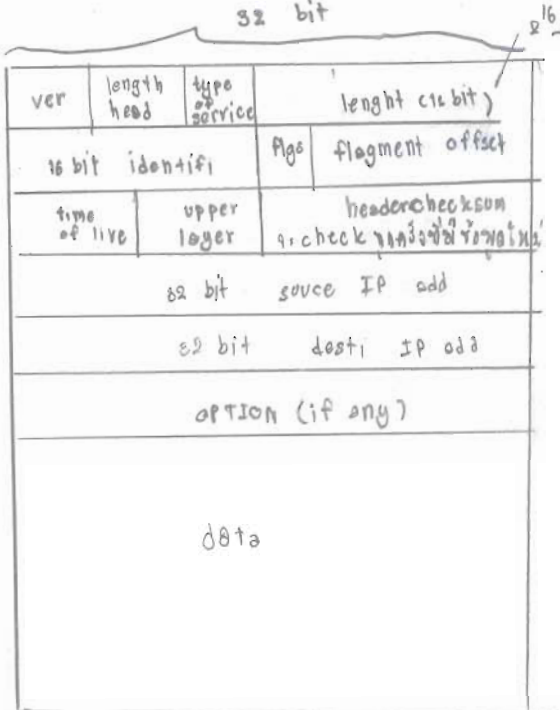 32 bit
2^16
ver length head type of service lenght (16 bit)
16 bit identifi flgs flagment offset
time of live upper layer headerchecksum
จะ check ทุกครั้งที่มีข้อมูลใหม่
32 bit souce IP add
32 bit desti IP add
OPTION (if any)
data